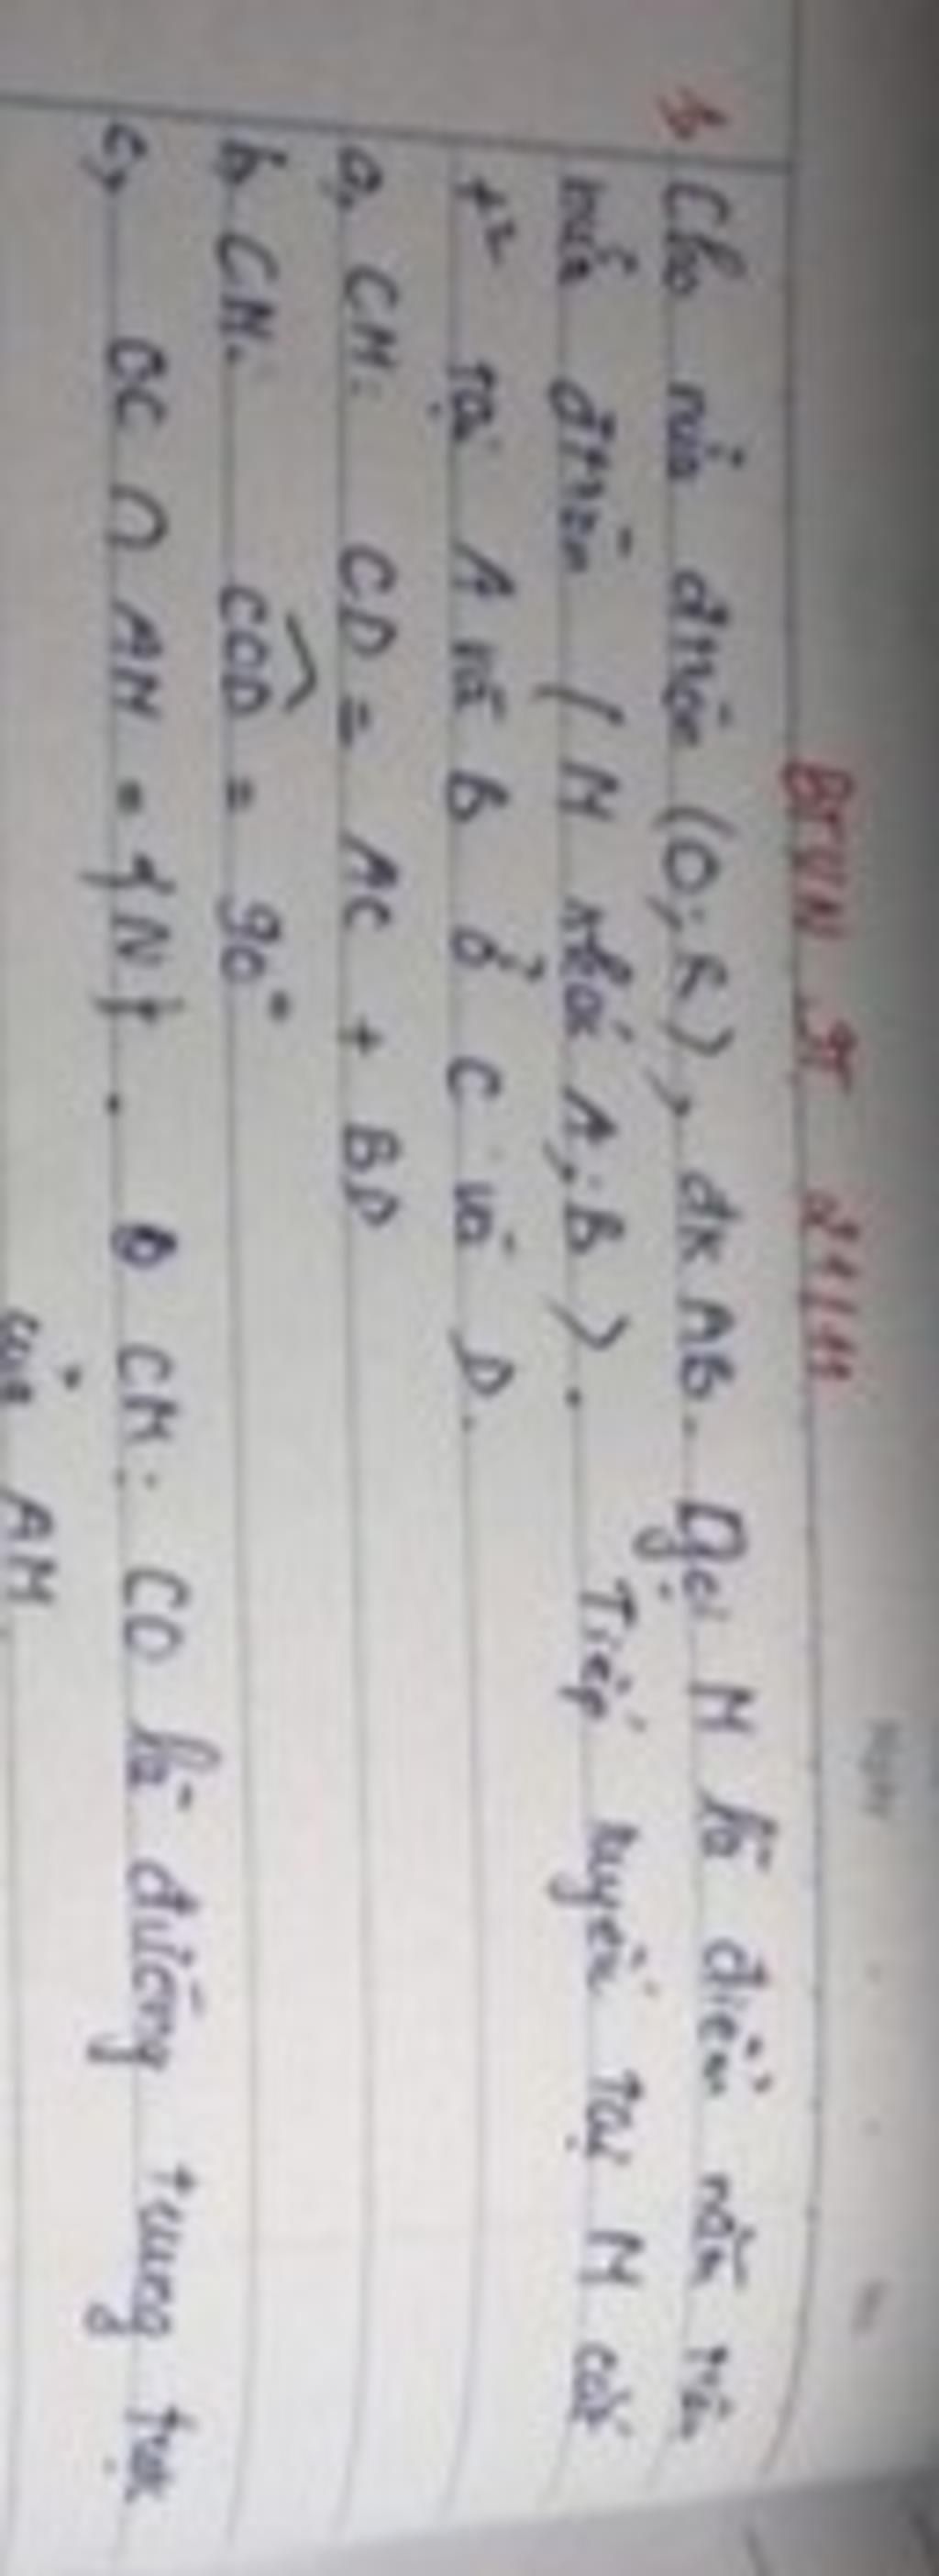 BTVN
b, Cho nửa đtròn (O; R), đk AB. Gọi M là điểm nằm trên
nửa đtròn (M khác A; B). Tiếp tuyến tại M cắt
t² tại A và B ở C và D.
a, CM: CD = AC + BD
b, CM: COD = 90°
c, OC ∩ AM = {N}. CM: CO là đường trung trực
của AM